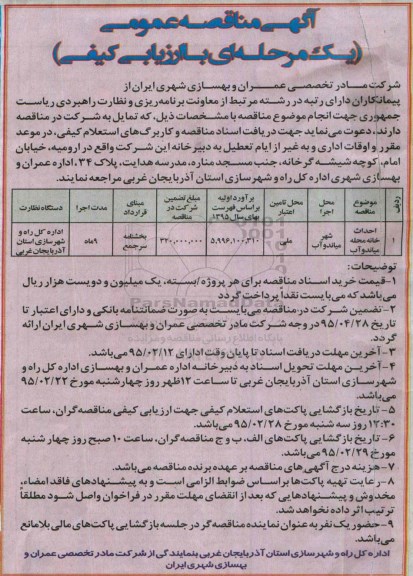 آگهی مناقصه عمومی
(یک مرحله‌ای با ارزیابی کیفی)
شرکت مادر تخصصی عمران و بهسازی شهری ایران از
پیمانکاران دارای رتبه در رشته مرتبط از معاونت برنامه‌ریزی و نظارت راهبردی ریاست
جمهوری جهت انجام موضوع مناقصه با مشخصات ذیل، که تمایل به شرکت در مناقصه
دارند، دعوت می‌نماید جهت دریافت اسناد مناقصه و کاربرگ‌های استعلام کیفی، در موعد
مقرر و اوقات اداری و به غیر از ایام تعطیل به دبیرخانه این شرکت واقع در ارومیه، خیابان
امام، کوچه شیشه گرخانه، جنب مسجد مناره، مدرسه هدایت، پلاک ۳۴، اداره عمران و
بهسازی شهری اداره کل راه و شهرسازی استان آذربایجان غربی مراجعه نمایند.
ردیف | موضوع مناقصه | محل اجرا | محل تامین اعتبار | برآورد اولیه براساس فهرست بهای سال ۱۳۹۵ | مبلغ تضمین شرکت در مناقصه | مبنای قرارداد | مدت اجرا | دستگاه نظارت
۱ | احداث خانه محله میاندوآب | شهر میاندوآب | ملی | ۵,۹۹۶,۱۰۰,۳۱۰ | ۳۲۰,۰۰۰,۰۰۰ | بخشنامه سرجمع | ۹ماه | اداره کل راه و شهرسازی استان آذربایجان غربی
توضیحات:
۱-قیمت خرید اسناد مناقصه برای هر پروژه/بسته، یک میلیون و دویست هزار ریال
می‌باشد که می‌بایست نقداً پرداخت گردد
۲-تضمین شرکت در مناقصه می‌بایست به صورت ضمانتنامه بانکی و دارای اعتبار تا
تاریخ ۹۵/۰۴/۲۸ در وجه شرکت مادر تخصصی عمران و بهسازی شهری ایران ارائه
گردد.
۳-آخرین مهلت دریافت اسناد تا پایان وقت اداری ۹۵/۰۲/۱۲ می‌باشد.
۴-آخرین مهلت تحویل اسناد به دبیرخانه اداره عمران و بهسازی اداره کل راه و
شهرسازی استان آذربایجان غربی تا ساعت ۱۲ ظهر روز چهارشنبه مورخ ۹۵/۰۲/۲۲
می‌باشد.
۵-تاریخ بازگشایی پاکت‌های استعلام کیفی جهت ارزیابی کیفی مناقصه‌گران، ساعت
۱۳:۳۰ روز سه شنبه مورخ ۹۵/۰۲/۲۸ می‌باشد.
۶-تاریخ بازگشایی پاکت‌های الف، ب و ج مناقصه گران، ساعت ۱۰ صبح روز چهارشنبه
مورخ ۹۵/۰۲/۲۹ می‌باشد.
۷-هزینه درج آگهی‌های مناقصه بر عهده برنده مناقصه می‌باشد.
۸-رعایت تهیه پاکت‌ها براساس ضوابط الزامی است و به پیشنهادهای فاقد امضاء،
مخدوش و پیشنهادهایی که بعد از انقضای مهلت مقرر در فراخوان واصل شود مطلقاً
ترتیب اثر داده نخواهد شد.
۹-حضور یک نفر به عنوان نماینده مناقصه گر در جلسه بازگشایی پاکت‌های مالی بلامانع
می‌باشد.
اداره کل راه و شهرسازی استان آذربایجان غربی بنمایندگی از شرکت مادر تخصصی عمران و
بهسازی شهری ایران